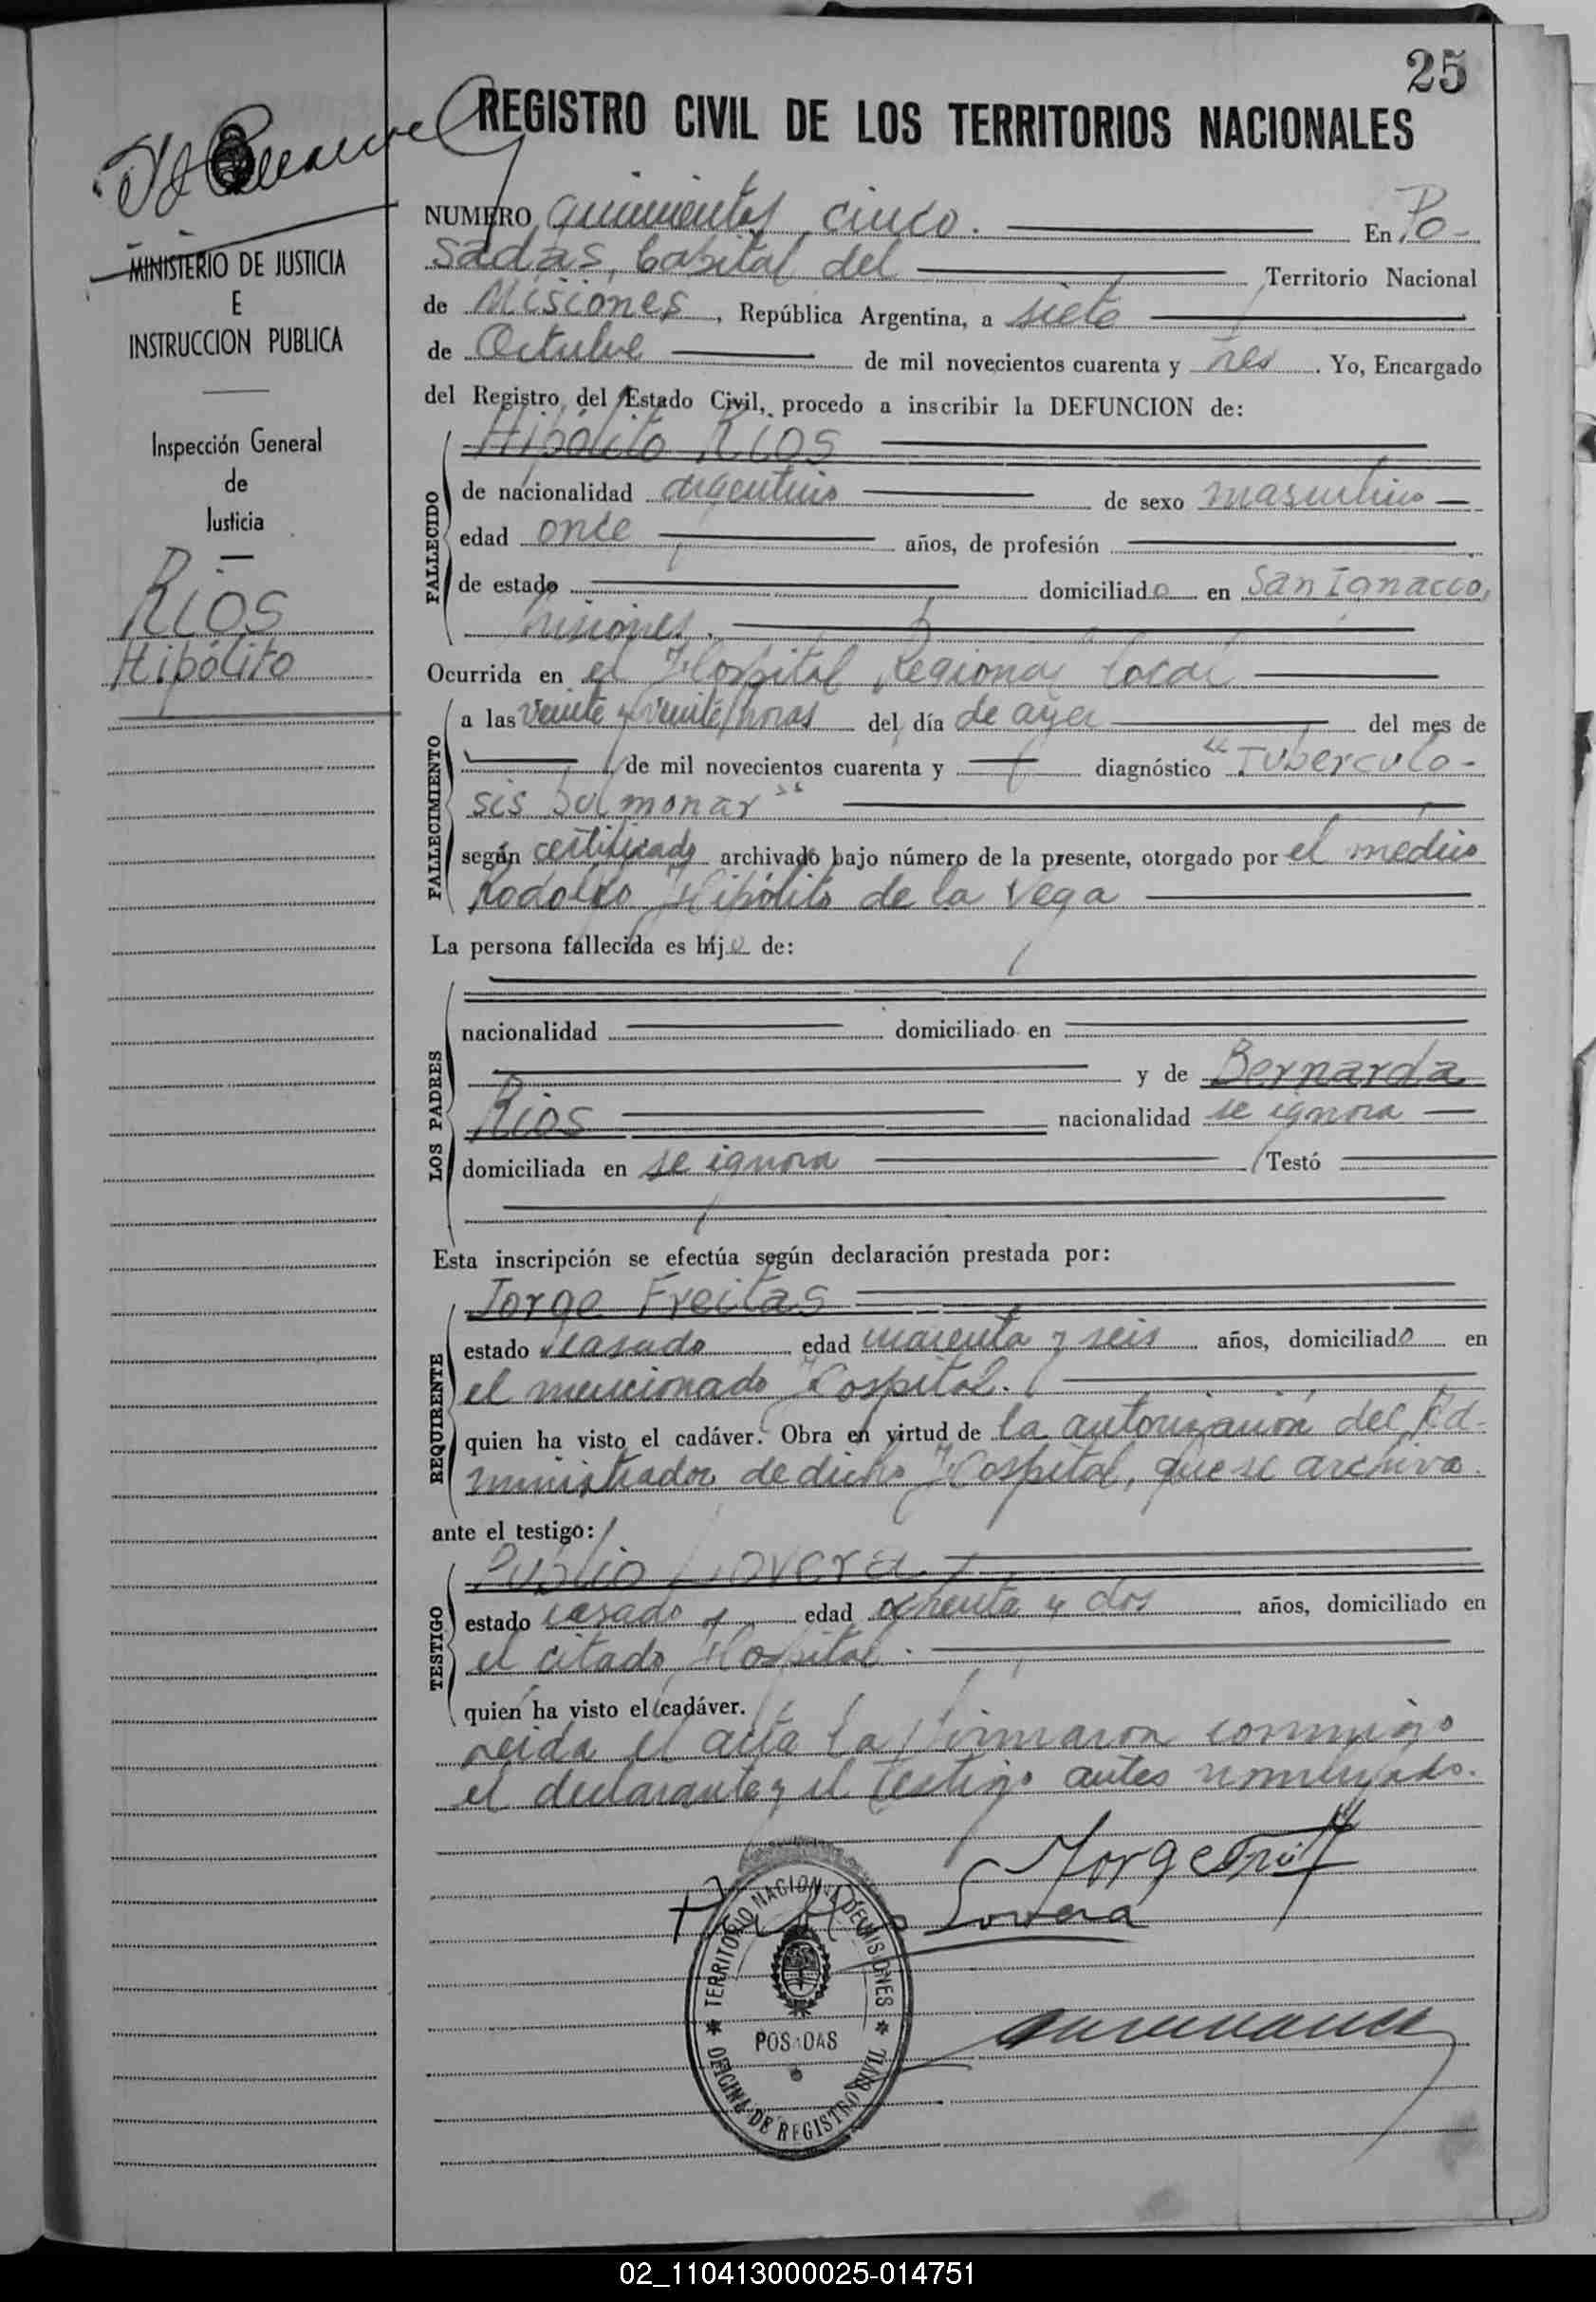 25
REGISTRO CIVIL DE LOS TERRITORIOS NACIONALES
MINISTERIO DE JUSTICIA
E
INSTRUCCION PUBLICA
Inspección General
de
Justicia
Ríos
Hipólito
NUMERO quinientos cinco. En Po-
sadas, Capital del Territorio Nacional
de Misiones, República Argentina, a siete
de Octubre de mil novecientos cuarenta y tres. Yo, Encargado
del Registro del Estado Civil, procedo a inscribir la DEFUNCION de:
Hipólito Ríos
FALLECIDO
de nacionalidad argentino de sexo masculino
edad once años, de profesión
de estado domiciliado en San Ignacio,
Misiones.
Ocurrida en el Hospital Regional local
FALLECIMIENTO
a las veinte y veinte horas del día de ayer del mes de
de mil novecientos cuarenta y diagnóstico "Tuberculo-
sis pulmonar"
según certificado archivado bajo número de la presente, otorgado por el médico
Rodolfo Hipólito de la Vega
La persona fallecida es hijo de:
LOS PADRES
nacionalidad domiciliado en
y de Bernarda
Ríos nacionalidad se ignora
domiciliada en se ignora Testó
Esta inscripción se efectúa según declaración prestada por:
Jorge Freitas
REQUIRENTE
estado casado edad cuarenta y seis años, domiciliado en
el mencionado Hospital.
quien ha visto el cadáver. Obra en virtud de la autorización del Ad-
ministrador de dicho Hospital, que se archiva.
ante el testigo:
Publio Lovera
TESTIGO
estado casado edad ochenta y dos años, domiciliado en
el citado Hospital.
quien ha visto el cadáver.
Leida el acta la firmaron conmigo
el declarante y el testigo antes nombrado.
Jorge
Lovera
TERRITORIO NACIONAL DE MISIONES
POSADAS
OFICINA DE REGISTRO CIVIL
02_110413000025-014751